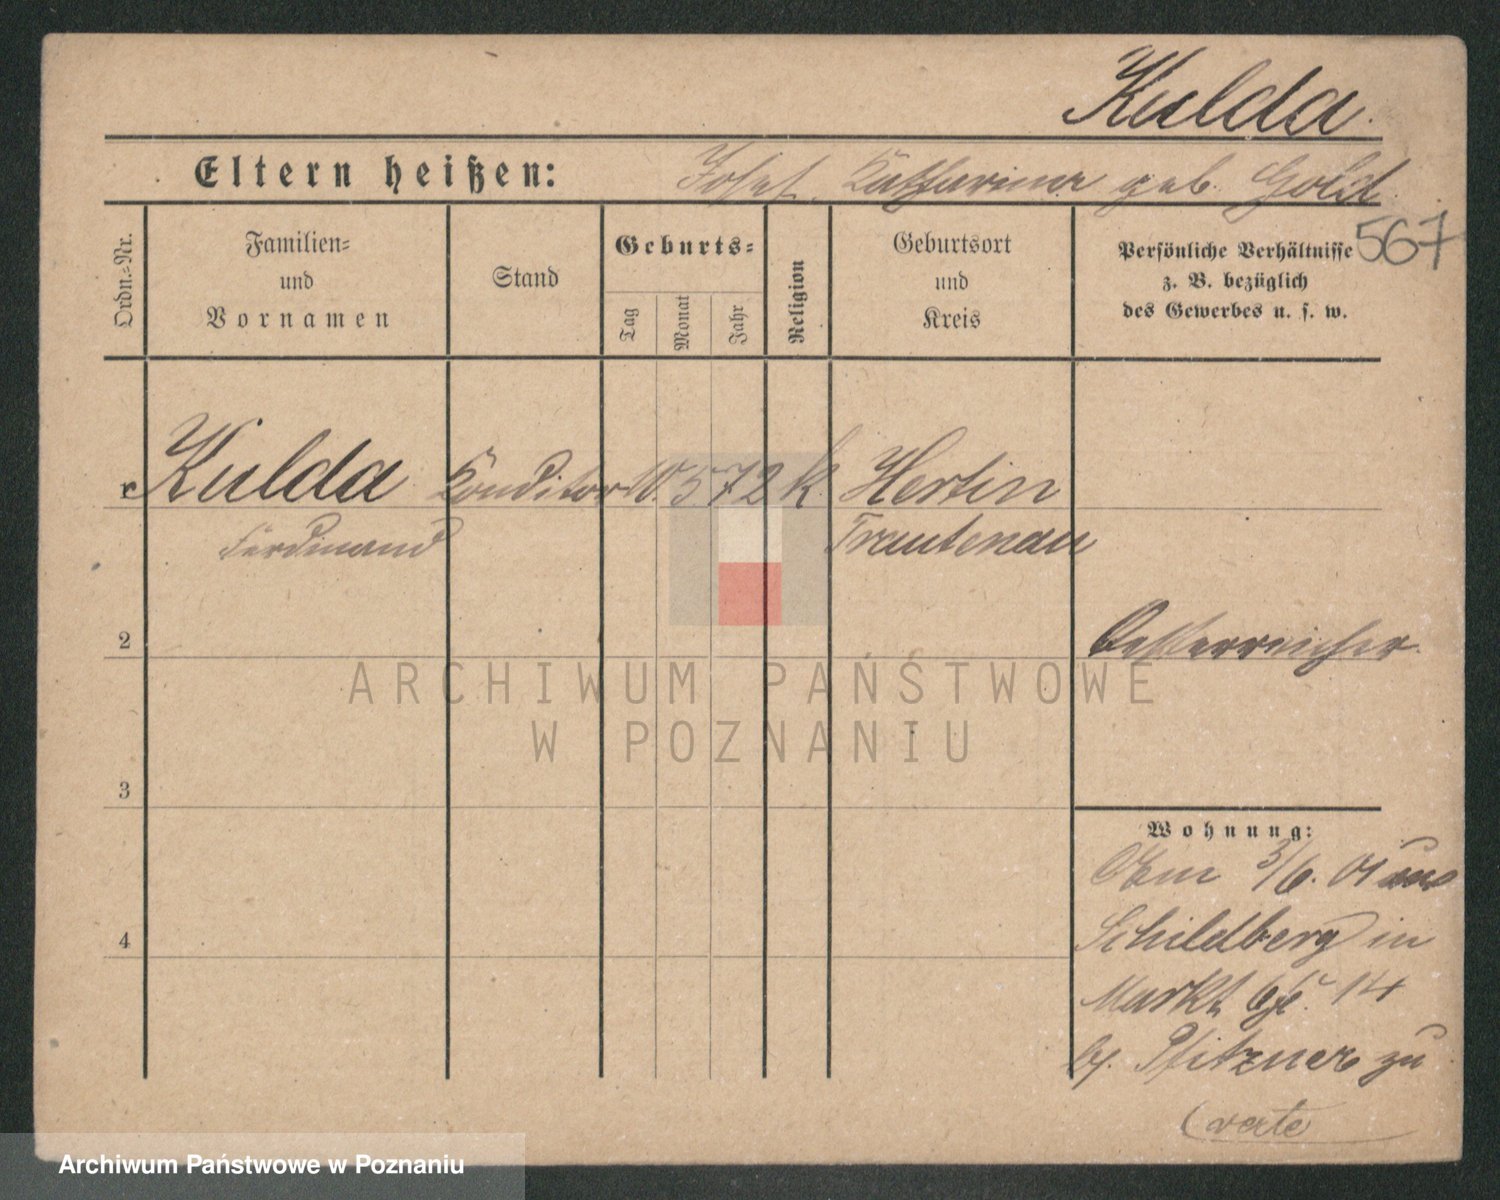 Kulda.
Eltern heißen: Josef, Katharina geb. Gold
567
Ordn.=Nr.
Familien=
und
Vornamen
Stand
Geburts=
Tag
Monat
Jahr
Religion
Geburtsort
und
Kreis
Persönliche Verhältnisse
z. B. bezüglich
des Gewerbes u. s. w.
Kulda Conditor 10. 5 72 k. Hertin
Ferdinand Trautenau
2
Oesterreicher
3
Wohnung:
3/6. 01 aus
4
Schildberg in
Markt 14
b/. Pfitzner zu
(verte
ARCHIWUM PAŃSTWOWE
W POZNANIU
Archiwum Państwowe w Poznaniu